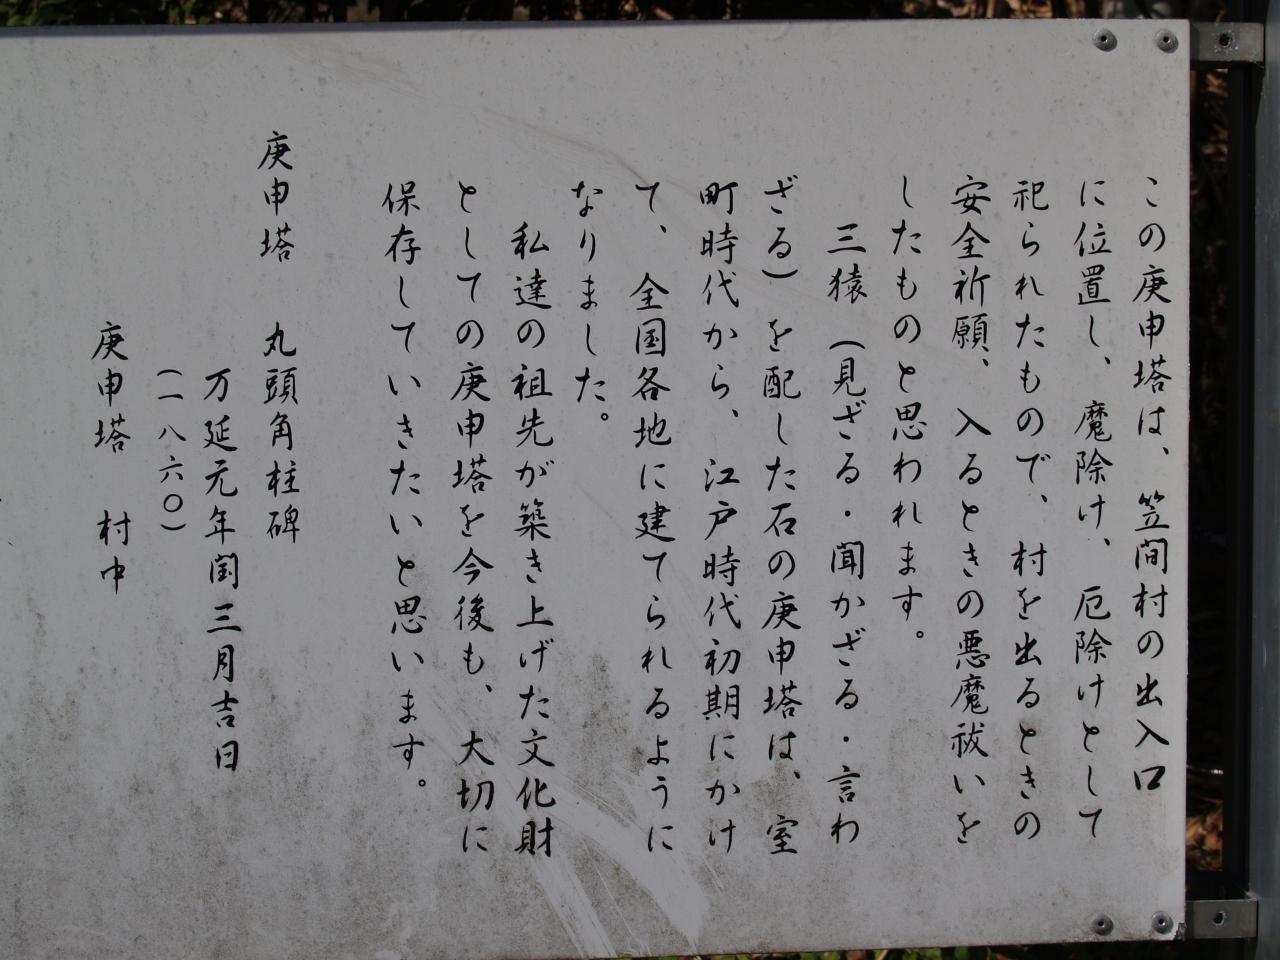 この庚申塔は、笠間村の出入口
に位置し、魔除け、厄除けとして
祀られたもので、村を出るときの
安全祈願、入るときの悪魔祓いを
したものと思われます。
三猿（見ざる・聞かざる・言わ
ざる）を配した石の庚申塔は、室
町時代から、江戸時代初期にかけ
て、全国各地に建てられるように
なりました。
私達の祖先が築き上げた文化財
としての庚申塔を今後も、大切に
保存していきたいと思います。
庚申塔 丸頭角柱碑
万延元年閏三月吉日
（一八六〇）
庚申塔 村中